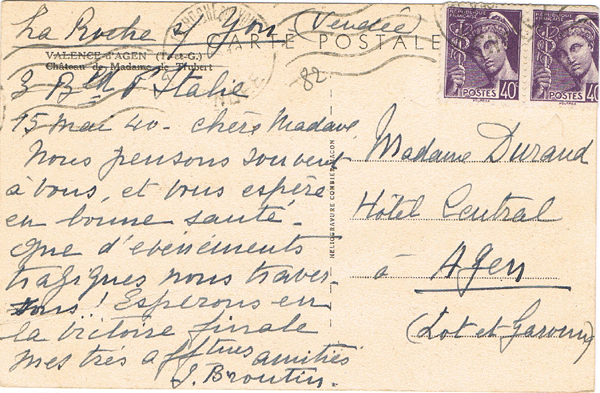 La Roche s/ Yon (Vendée)
CARTE POSTALE
VALENCE-d'AGEN (T.-et-G.)
Château de Madame de Trubert
3 Bd d'Italie
82
15 mai 40 - chère Madame
Nous pensons souvent
à vous, et vous espère
en bonne santé -
que d'evénements
tragiques nous traver
sons..! Espérons en
la victoire finale
mes très afftues amitiés
S. Broutin.
HELIOGRAVURE COMBIER MACON
REPUBLIQUE FRANÇAISE
POSTES 40c
REPUBLIQUE FRANÇAISE
POSTES 40
Madame Durand
Hôtel Central
à Agen
(Lot et Garonne)